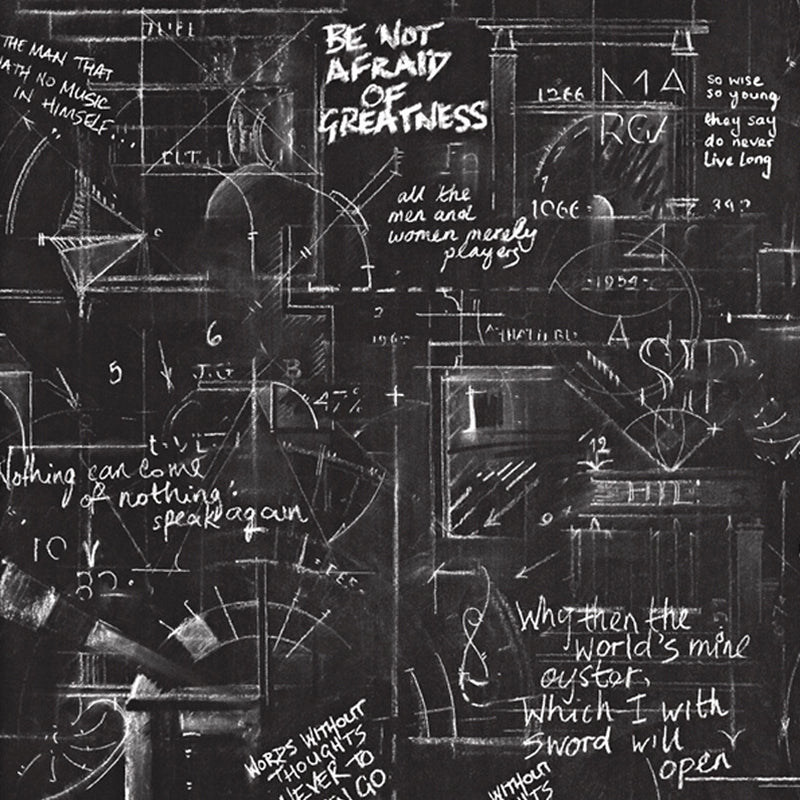 THE MAN THAT
HATH NO MUSIC
IN HIMSELF...
BE NOT
AFRAID
OF
GREATNESS
so wise
so young
they say
do never
live long
1266
MA
1066
392
all the
men and
women merely
players
1954
6
5
J.G
B
47%
A
SIP
12
Nothing can come
of nothing:
speak again
10
Why then the
world's mine
oyster,
Which I with
sword will
open
WORDS WITHOUT
THOUGHTS
NEVER TO
GO
WITHOUT